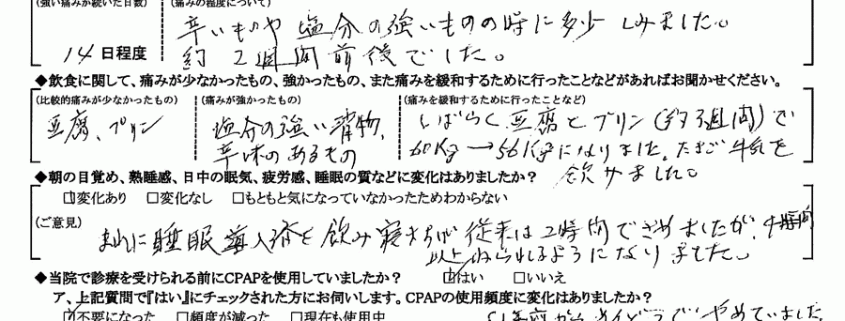 (強い痛みが続いた日数) (痛みの程度について)
辛いものや 塩分の強いものの時に多少 しみました。
14 日程度 約 2週間前後でした。
◆飲食に関して、痛みが少なかったもの、強かったもの、また痛みを緩和するために行ったことなどがあればお聞かせください。
(比較的痛みが少なかったもの) (痛みが強かったもの) (痛みを緩和するために行ったことなど)
豆腐、プリン 塩分の強い しばらく 豆腐と プリン 週間)で
辛味のあるもの 60Kg→56Kgになりました。たまご牛乳を
◆朝の目覚め、熟睡感、日中の眠気、疲労感、睡眠の質などに変化はありましたか? 飲みました。
☑変化あり □変化なし □もともと気になっていなかったためわからない
(ご意見)
睡眠導入剤を飲み 従来は2時間でさめましたが、4時間
以上ねられるようになりました。
◆当院で診療を受けられる前にCPAPを使用していましたか? ☑はい □いいえ
ア、上記質問で『はい』にチェックされた方にお伺いします。CPAPの使用頻度に変化はありましたか?
☑不要になった □頻度が減った □現在も使用中 やめていました